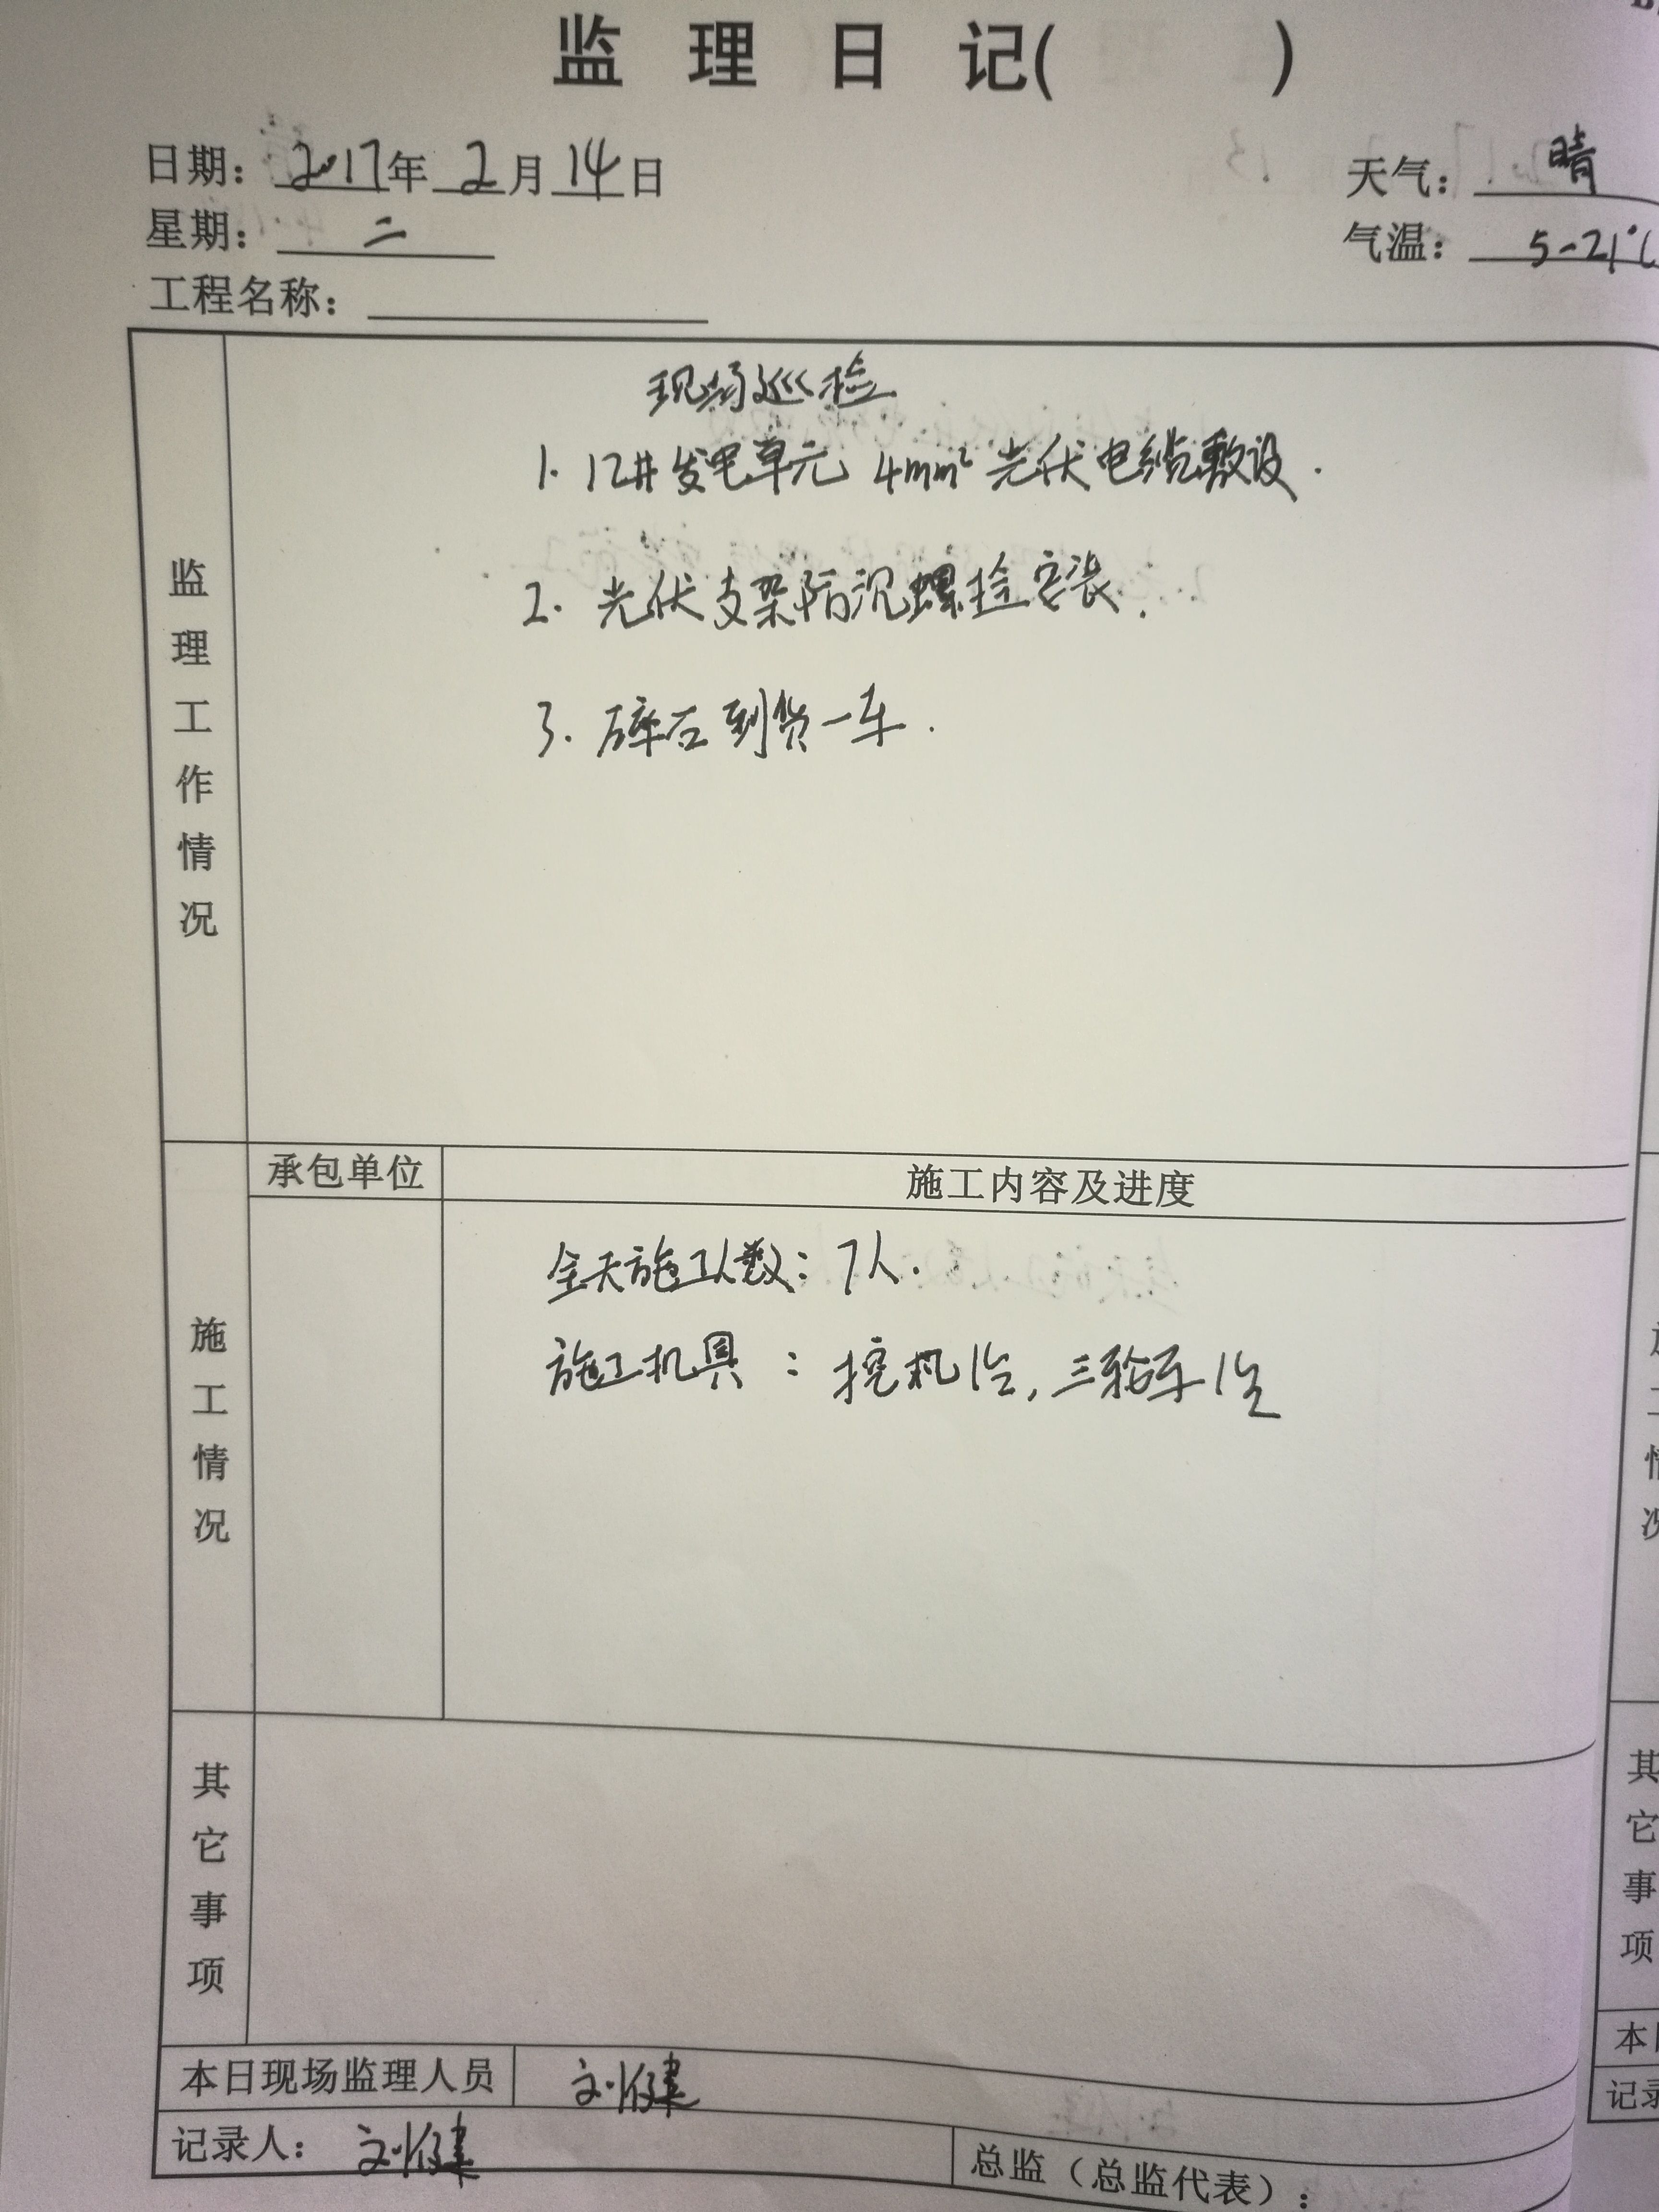 监理日记(  )
日期：2017年2月14日 天气：晴
星期：二 气温：5-21℃
工程名称：
监理工作情况
现场巡检
1. 12#发电单元 4mm² 光伏电缆敷设.
2. 光伏支架防沉螺栓安装.
3. 碎石到货一车.
承包单位 施工内容及进度
施工情况
全天施工人数：7人.
施工机具：挖机1台, 三轮车1台
其它事项
本日现场监理人员 刘健
记录人：刘健 总监（总监代表）：
其它事项